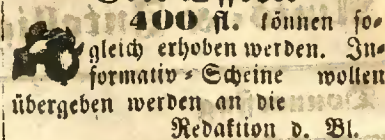 400 fl. können so=
gleich erhoben werden. In=
formativ=Scheine wollen
übergeben werden an die
Redaktion d. Bl.